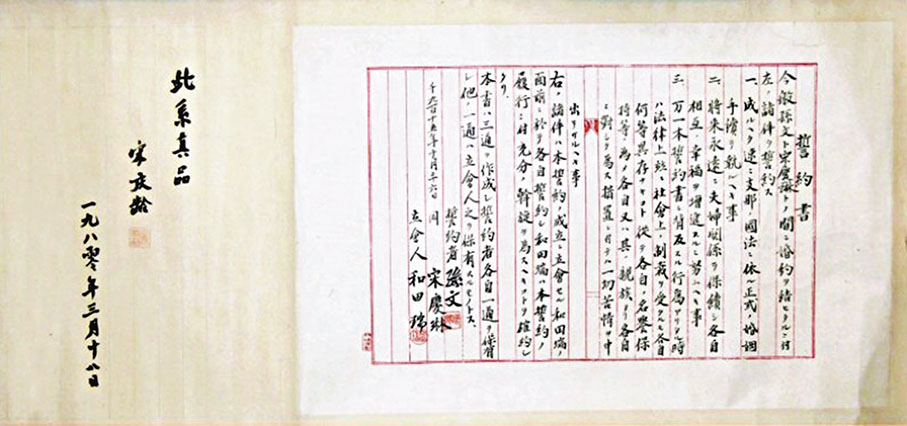 誓約書
今般孫文ト宋慶琳トノ間ニ婚約ヲ結ヒタルニ付
左ノ諸件ヲ誓約ス
一、成ルヘク速ニ支那ノ國法ニ依ル正式ノ婚姻
手續ヲ執ルヘキ事
二、將来永遠ニ夫婦關係ヲ保續シ各自
相互ノ幸福ヲ増進スルニ努ムヘキ事
三、万一本誓約書ニ背反スル行為アリタル時
ハ法律上社會上ノ制裁ヲ受クルモ各自
何等異存ナキコト從テ各自ノ名譽保
持等ノ為メ各自又ハ其ノ親族ヨリ各自
ニ對シテ為ス措置ニ付テハ一切苦情ヲ申
出サルヘキ事
右ノ諸件ハ本誓約ノ成立ニ立會セル和田瑞ノ
面前ニ於テ各自誓約シ和田瑞ハ本誓約ノ
履行ニ付充分ノ斡旋ヲ為スヘキコトヲ確約シ
タリ、
本書ハ三通ヲ作成シ誓約者各自一通ヲ保有
シ他ノ一通ハ立會人之ヲ保有スルモノトス、
千九百十五年十月二十六日
誓約者 孫文
同 宋慶琳
立會人 和田瑞
此系真品
宋慶齡
一九八零年三月十八日